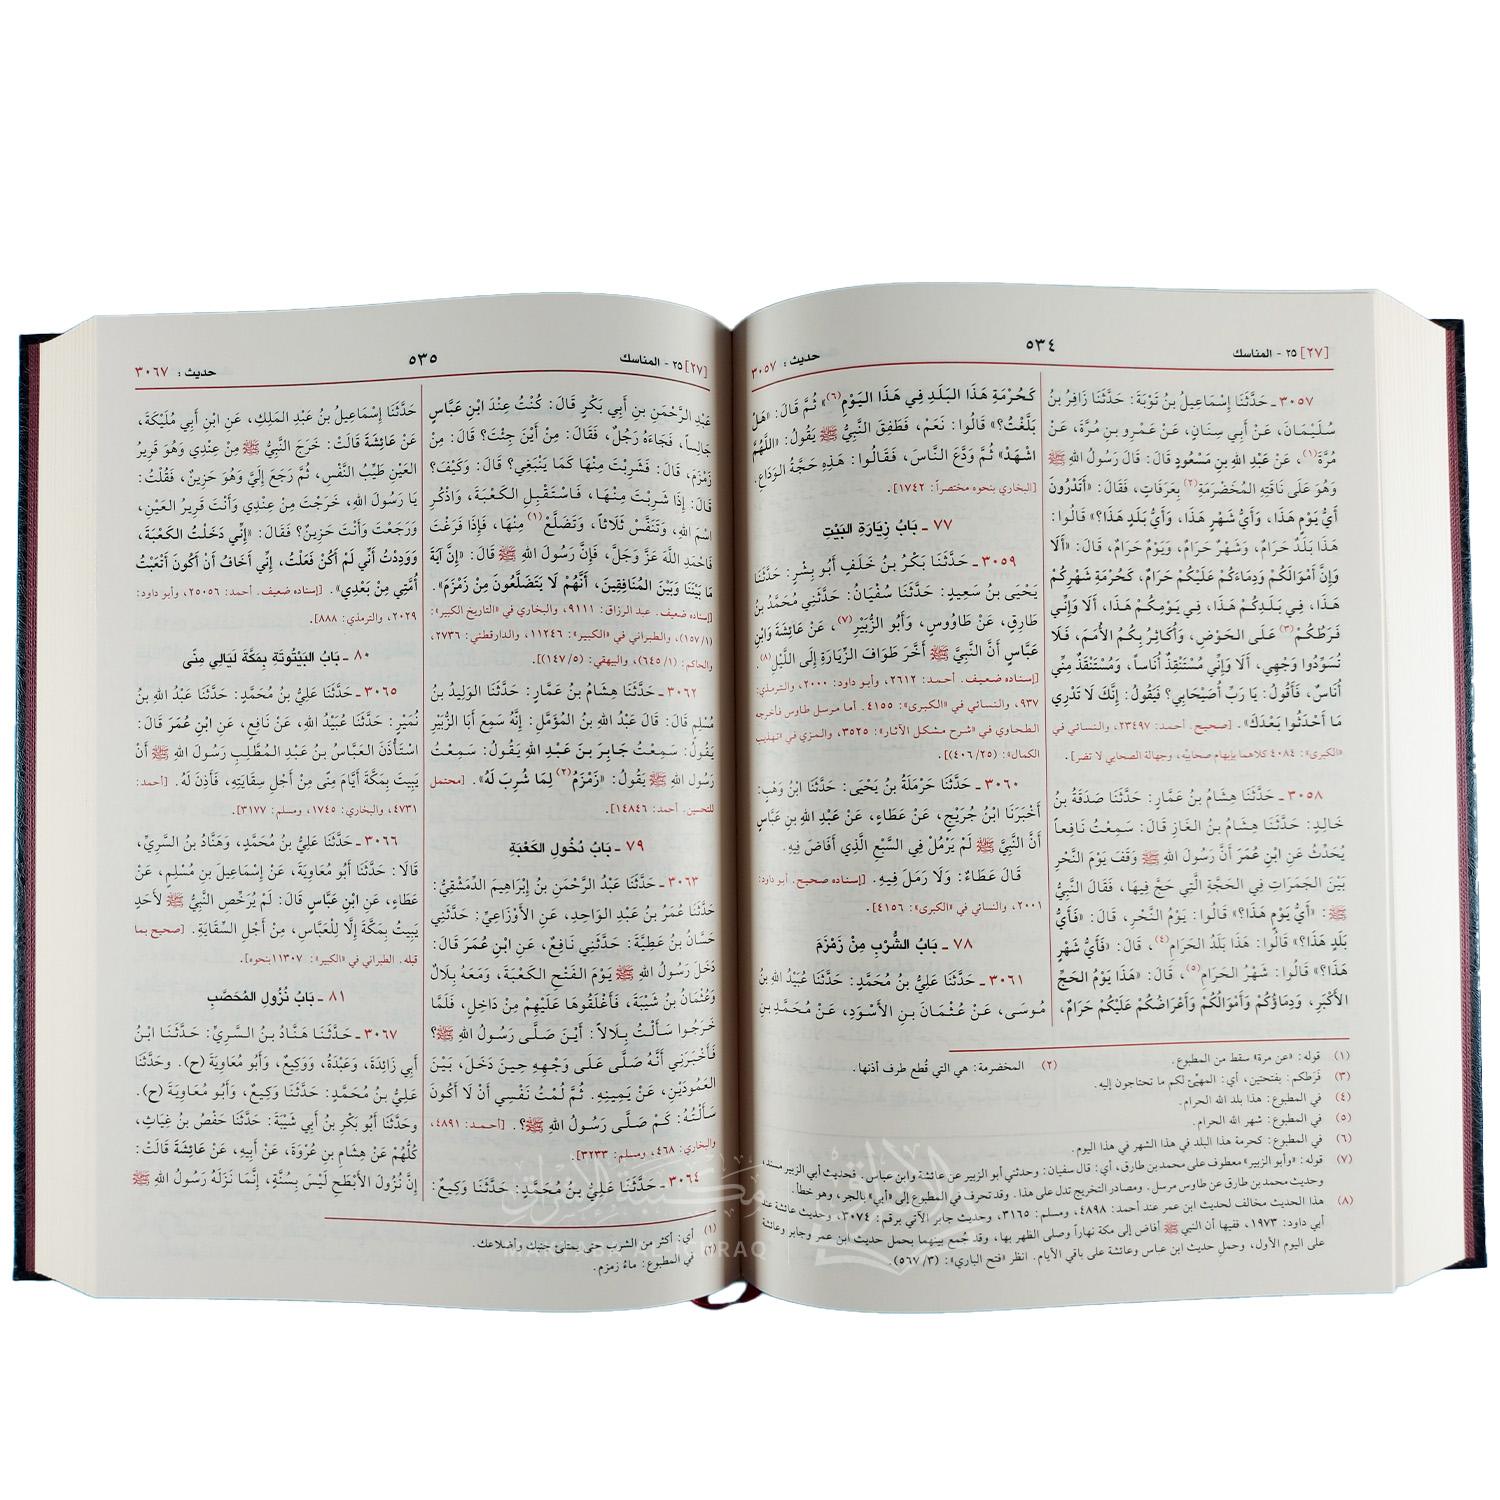 [٢٧] ٢٥ - المناسك
٥٣٤
حديث : ٣٠٥٧
٣٠٥٧ ـ حَدَّثَنَا إِسْمَاعِيلُ بنُ تَوْبَةَ: حَدَّثَنَا زَافِرُ بنُ
سُلَيْمَانَ، عَنْ أَبِي سِنَانٍ، عَنْ عَمْرِو بنِ مُرَّةَ، عَنْ
مُرَّةَ(١)، عَنْ عَبْدِ اللهِ بنِ مَسْعُودٍ قَالَ: قَالَ رَسُولُ اللهِ ﷺ
وَهُوَ عَلَى نَاقَتِهِ المُخَضْرَمَةِ(٢) بِعَرَفَاتٍ، فَقَالَ: «أَتَدْرُونَ
أَيُّ يَوْمٍ هَذَا، وَأَيُّ شَهْرٍ هَذَا، وَأَيُّ بَلَدٍ هَذَا؟» قَالُوا:
هَذَا بَلَدٌ حَرَامٌ، وَشَهْرٌ حَرَامٌ، وَيَوْمٌ حَرَامٌ، قَالَ: «أَلَا
وَإِنَّ أَمْوَالَكُمْ وَدِمَاءَكُمْ عَلَيْكُمْ حَرَامٌ، كَحُرْمَةِ شَهْرِكُمْ
هَذَا، فِي بَلَدِكُمْ هَذَا، فِي يَوْمِكُمْ هَذَا، أَلَا وَإِنِّي
فَرَطُكُمْ(٣) عَلَى الحَوْضِ، وَأُكَاثِرُ بِكُمُ الأُمَمَ، فَلَا
تُسَوِّدُوا وَجْهِي، أَلَا وَإِنِّي مُسْتَنْقِذٌ أُنَاساً، وَمُسْتَنْقَذٌ مِنِّي
أُنَاسٌ، فَأَقُولُ: يَا رَبِّ أُصَيْحَابِي؟ فَيَقُولُ: إِنَّكَ لَا تَدْرِي
مَا أَحْدَثُوا بَعْدَكَ». [صحيح. أحمد: ٢٣٤٩٧، والنسائي في
«الكبرى»: ٤٠٨٤ كلاهما بإبهام صحابيِّه، وجهالة الصحابي لا تضر].
٣٠٥٨ ـ حَدَّثَنَا هِشَامُ بنُ عَمَّارٍ: حَدَّثَنَا صَدَقَةُ بنُ
خَالِدٍ: حَدَّثَنَا هِشَامُ بنُ الغَازِ قَالَ: سَمِعْتُ نَافِعاً
يُحَدِّثُ عَنِ ابْنِ عُمَرَ أَنَّ رَسُولَ اللهِ ﷺ وَقَفَ يَوْمَ النَّحْرِ
بَيْنَ الجَمَرَاتِ فِي الحَجَّةِ الَّتِي حَجَّ فِيهَا، فَقَالَ النَّبِيُّ
ﷺ: «أَيُّ يَوْمٍ هَذَا؟» قَالُوا: يَوْمُ النَّحْرِ، قَالَ: «فَأَيُّ
بَلَدٍ هَذَا؟» قَالُوا: هَذَا بَلَدُ الحَرَامِ(٤)، قَالَ: «فَأَيُّ شَهْرٍ
هَذَا؟» قَالُوا: شَهْرُ الحَرَامِ(٥)، قَالَ: «هَذَا يَوْمُ الحَجِّ
الأَكْبَرِ، وَدِمَاؤُكُمْ وَأَمْوَالُكُمْ وَأَعْرَاضُكُمْ عَلَيْكُمْ حَرَامٌ،
كَحُرْمَةِ هَذَا البَلَدِ فِي هَذَا اليَوْمِ(٦)» ثُمَّ قَالَ: «هَلْ
بَلَّغْتُ؟» قَالُوا: نَعَمْ، فَطَفِقَ النَّبِيُّ ﷺ يَقُولُ: «اللَّهُمَّ
اشْهَدْ» ثُمَّ وَدَّعَ النَّاسَ، فَقَالُوا: هَذِهِ حَجَّةُ الوَدَاعِ.
[البخاري بنحوه مختصراً: ١٧٤٢].
٧٧ ـ بَابُ زِيَارَةِ البَيْتِ
٣٠٥٩ ـ حَدَّثَنَا بَكْرُ بنُ خَلَفٍ أَبُو بِشْرٍ: حَدَّثَنَا
يَحْيَى بنُ سَعِيدٍ: حَدَّثَنَا سُفْيَانُ: حَدَّثَنِي مُحَمَّدُ بنُ
طَارِقٍ، عَنْ طَاوُوسٍ، وَأَبُو الزُّبَيْرِ(٧)، عَنْ عَائِشَةَ وَابْنِ
عَبَّاسٍ أَنَّ النَّبِيَّ ﷺ أَخَّرَ طَوَافَ الزِّيَارَةِ إِلَى اللَّيْلِ(٨).
[إسناده ضعيف. أحمد: ٢٦١٢، وأبو داود: ٢٠٠٠، والترمذي:
٩٣٧، والنسائي في «الكبرى»: ٤١٥٥. أما مرسل طاوس فأخرجه
الطحاوي في «شرح مشكل الآثار»: ٣٥٢٥، والمزي في «تهذيب
الكمال»: (٤٠٦/٢٥)].
٣٠٦٠ ـ حَدَّثَنَا حَرْمَلَةُ بنُ يَحْيَى: حَدَّثَنَا ابْنُ وَهْبٍ:
أَخْبَرَنَا ابْنُ جُرَيْجٍ، عَنْ عَطَاءٍ، عَنْ عَبْدِ اللهِ بنِ عَبَّاسٍ
أَنَّ النَّبِيَّ ﷺ لَمْ يَرْمُلْ فِي السَّبْعِ الَّذِي أَفَاضَ فِيهِ.
قَالَ عَطَاءٌ: وَلَا رَمَلَ فِيهِ. [إسناده صحيح. أبو داود:
٢٠٠١، والنسائي في «الكبرى»: ٤١٥٦].
٧٨ ـ بَابُ الشُّرْبِ مِنْ زَمْزَمَ
٣٠٦١ ـ حَدَّثَنَا عَلِيُّ بنُ مُحَمَّدٍ: حَدَّثَنَا عُبَيْدُ اللهِ بنُ
مُوسَى، عَنْ عُثْمَانَ بنِ الأَسْوَدِ، عَنْ مُحَمَّدِ بنِ
(١) قوله: «عن مرة» سقط من المطبوع. (٢) المخضرمة: هي التي قُطع طرف أذنها.
(٣) فَرَطكم: بفتحتين، أي: المهيِّئ لكم ما تحتاجون إليه.
(٤) في المطبوع: هذا بلد الله الحرام.
(٥) في المطبوع: شهر الله الحرام.
(٦) في المطبوع: كحرمة هذا البلد في هذا الشهر في هذا اليوم.
(٧) قوله: «وأبو الزبير» معطوف على محمد بن طارق، أي: قال سفيان: وحدثني أبو الزبير عن عائشة وابن عباس. فحديث أبي الزبير مسند،
وحديث محمد بن طارق عن طاوس مرسل. ومصادر التخريج تدل على هذا. وقد تحرف في المطبوع إلى «أبي» بالجر، وهو خطأ.
(٨) هذا الحديث مخالف لحديث ابن عمر عند أحمد: ٤٨٩٨، ومسلم: ٣١٦٥، وحديث جابر الآتي برقم: ٣٠٧٤، وحديث عائشة عند
أبي داود: ١٩٧٣، ففيها أن النبي ﷺ أفاض إلى مكة نهاراً وصلى الظهر بها، وقد جُمع بينهما بحمل حديث ابن عمر وجابر وعائشة
على اليوم الأول، وحملِ حديث ابن عباس وعائشة على باقي الأيام. انظر «فتح الباري»: (٥٦٧/٣).
[٢٧] ٢٥ - المناسك
٥٣٥
حديث : ٣٠٦٧
عَبْدِ الرَّحْمَنِ بنِ أَبِي بَكْرٍ قَالَ: كُنْتُ عِنْدَ ابْنِ عَبَّاسٍ
جَالِساً، فَجَاءَهُ رَجُلٌ، فَقَالَ: مِنْ أَيْنَ جِئْتَ؟ قَالَ: مِنْ
زَمْزَمَ، قَالَ: فَشَرِبْتَ مِنْهَا كَمَا يَنْبَغِي؟ قَالَ: وَكَيْفَ؟
قَالَ: إِذَا شَرِبْتَ مِنْهَا، فَاسْتَقْبِلِ الكَعْبَةَ، وَاذْكُرِ
اسْمَ اللهِ، وَتَنَفَّسْ ثَلَاثاً، وَتَضَلَّعْ(١) مِنْهَا، فَإِذَا فَرَغْتَ
فَاحْمَدِ اللَّهَ عَزَّ وَجَلَّ، فَإِنَّ رَسُولَ اللهِ ﷺ قَالَ: «إِنَّ آيَةَ
مَا بَيْنَنَا وَبَيْنَ المُنَافِقِينَ، أَنَّهُمْ لَا يَتَضَلَّعُونَ مِنْ زَمْزَمَ».
[إسناده ضعيف. عبد الرزاق: ٩١١١، والبخاري في «التاريخ الكبير»:
(١٥٧/١)، والطبراني في «الكبير»: ١١٢٤٦، والدارقطني: ٢٧٣٦،
والحاكم: (٦٤٥/١)، والبيهقي: (١٤٧/٥)].
٣٠٦٢ ـ حَدَّثَنَا هِشَامُ بنُ عَمَّارٍ: حَدَّثَنَا الوَلِيدُ بنُ
مُسْلِمٍ قَالَ: قَالَ عَبْدُ اللهِ بنُ المُؤَمَّلِ: إِنَّهُ سَمِعَ أَبَا الزُّبَيْرِ
يَقُولُ: سَمِعْتُ جَابِرَ بنَ عَبْدِ اللهِ يَقُولُ: سَمِعْتُ
رَسُولَ اللهِ ﷺ يَقُولُ: «زَمْزَمُ(٢) لِمَا شُرِبَ لَهُ». [محتمل
للتحسين. أحمد: ١٤٨٤٦].
٧٩ ـ بَابُ دُخُولِ الكَعْبَةِ
٣٠٦٣ ـ حَدَّثَنَا عَبْدُ الرَّحْمَنِ بنُ إِبْرَاهِيمَ الدِّمَشْقِيُّ:
حَدَّثَنَا عُمَرُ بنُ عَبْدِ الوَاحِدِ، عَنِ الأَوْزَاعِيِّ: حَدَّثَنِي
حَسَّانُ بنُ عَطِيَّةَ: حَدَّثَنِي نَافِعٌ، عَنِ ابْنِ عُمَرَ قَالَ:
دَخَلَ رَسُولُ اللهِ ﷺ يَوْمَ الفَتْحِ الكَعْبَةَ، وَمَعَهُ بِلَالٌ
وَعُثْمَانُ بنُ شَيْبَةَ، فَأَغْلَقُوهَا عَلَيْهِمْ مِنْ دَاخِلٍ، فَلَمَّا
خَرَجُوا سَأَلْتُ بِلَالاً: أَيْنَ صَلَّى رَسُولُ اللهِ ﷺ؟
فَأَخْبَرَنِي أَنَّهُ صَلَّى عَلَى وَجْهِهِ حِينَ دَخَلَ، بَيْنَ
العَمُودَيْنِ، عَنْ يَمِينِهِ. ثُمَّ لُمْتُ نَفْسِي أَنْ لَا أَكُونَ
سَأَلْتُهُ: كَمْ صَلَّى رَسُولُ اللهِ ﷺ؟. [أحمد: ٤٨٩١،
والبخاري: ٤٦٨، ومسلم: ٣٢٣٣].
٣٠٦٤ ـ حَدَّثَنَا عَلِيُّ بنُ مُحَمَّدٍ: حَدَّثَنَا وَكِيعٌ:
حَدَّثَنَا إِسْمَاعِيلُ بنُ عَبْدِ المَلِكِ، عَنِ ابْنِ أَبِي مُلَيْكَةَ،
عَنْ عَائِشَةَ قَالَتْ: خَرَجَ النَّبِيُّ ﷺ مِنْ عِنْدِي وَهُوَ قَرِيرُ
العَيْنِ طَيِّبُ النَّفْسِ، ثُمَّ رَجَعَ إِلَيَّ وَهُوَ حَزِينٌ، فَقُلْتُ:
يَا رَسُولَ اللهِ، خَرَجْتَ مِنْ عِنْدِي وَأَنْتَ قَرِيرُ العَيْنِ،
وَرَجَعْتَ وَأَنْتَ حَزِينٌ؟ فَقَالَ: «إِنِّي دَخَلْتُ الكَعْبَةَ،
وَوَدِدْتُ أَنِّي لَمْ أَكُنْ فَعَلْتُ، إِنِّي أَخَافُ أَنْ أَكُونَ أَتْعَبْتُ
أُمَّتِي مِنْ بَعْدِي». [إسناده ضعيف. أحمد: ٢٥٠٥٦، وأبو داود:
٢٠٢٩، والترمذي: ٨٨٨].
٨٠ ـ بَابُ البَيْتُوتَةِ بِمَكَّةَ لَيَالِيَ مِنًى
٣٠٦٥ ـ حَدَّثَنَا عَلِيُّ بنُ مُحَمَّدٍ: حَدَّثَنَا عَبْدُ اللهِ بنُ
نُمَيْرٍ: حَدَّثَنَا عُبَيْدُ اللهِ، عَنْ نَافِعٍ، عَنِ ابْنِ عُمَرَ قَالَ:
اسْتَأْذَنَ العَبَّاسُ بنُ عَبْدِ المُطَّلِبِ رَسُولَ اللهِ ﷺ أَنْ
يَبِيتَ بِمَكَّةَ أَيَّامَ مِنًى مِنْ أَجْلِ سِقَايَتِهِ، فَأَذِنَ لَهُ. [أحمد:
٤٧٣١، والبخاري: ١٧٤٥، ومسلم: ٣١٧٧].
٣٠٦٦ ـ حَدَّثَنَا عَلِيُّ بنُ مُحَمَّدٍ، وَهَنَّادُ بنُ السَّرِيِّ،
قَالَا: حَدَّثَنَا أَبُو مُعَاوِيَةَ، عَنْ إِسْمَاعِيلَ بنِ مُسْلِمٍ، عَنْ
عَطَاءٍ، عَنِ ابْنِ عَبَّاسٍ قَالَ: لَمْ يُرَخِّصِ النَّبِيُّ ﷺ لأَحَدٍ
يَبِيتُ بِمَكَّةَ إِلَّا لِلْعَبَّاسِ، مِنْ أَجْلِ السِّقَايَةِ. [صحيح بما
قبله. الطبراني في «الكبير»: ١١٣٠٧بنحوه].
٨١ ـ بَابُ نُزُولِ المُحَصَّبِ
٣٠٦٧ ـ حَدَّثَنَا هَنَّادُ بنُ السَّرِيِّ: حَدَّثَنَا ابْنُ
أَبِي زَائِدَةَ، وَعَبْدَةُ، وَوَكِيعٌ، وَأَبُو مُعَاوِيَةَ (ح). وحَدَّثَنَا
عَلِيُّ بنُ مُحَمَّدٍ: حَدَّثَنَا وَكِيعٌ، وَأَبُو مُعَاوِيَةَ (ح).
وحَدَّثَنَا أَبُو بَكْرِ بنُ أَبِي شَيْبَةَ: حَدَّثَنَا حَفْصُ بنُ غِيَاثٍ،
كُلُّهُمْ عَنْ هِشَامِ بنِ عُرْوَةَ، عَنْ أَبِيهِ، عَنْ عَائِشَةَ قَالَتْ:
إِنَّ نُزُولَ الأَبْطَحِ لَيْسَ بِسُنَّةٍ، إِنَّمَا نَزَلَهُ رَسُولُ اللهِ ﷺ
(١) أي: أكثر من الشرب حتى يمتلئ جنبك وأضلاعك.
(٢) في المطبوع: ماءُ زمزم.
مكتبة الإشراق
MAKTABA AL-ISHRAQ